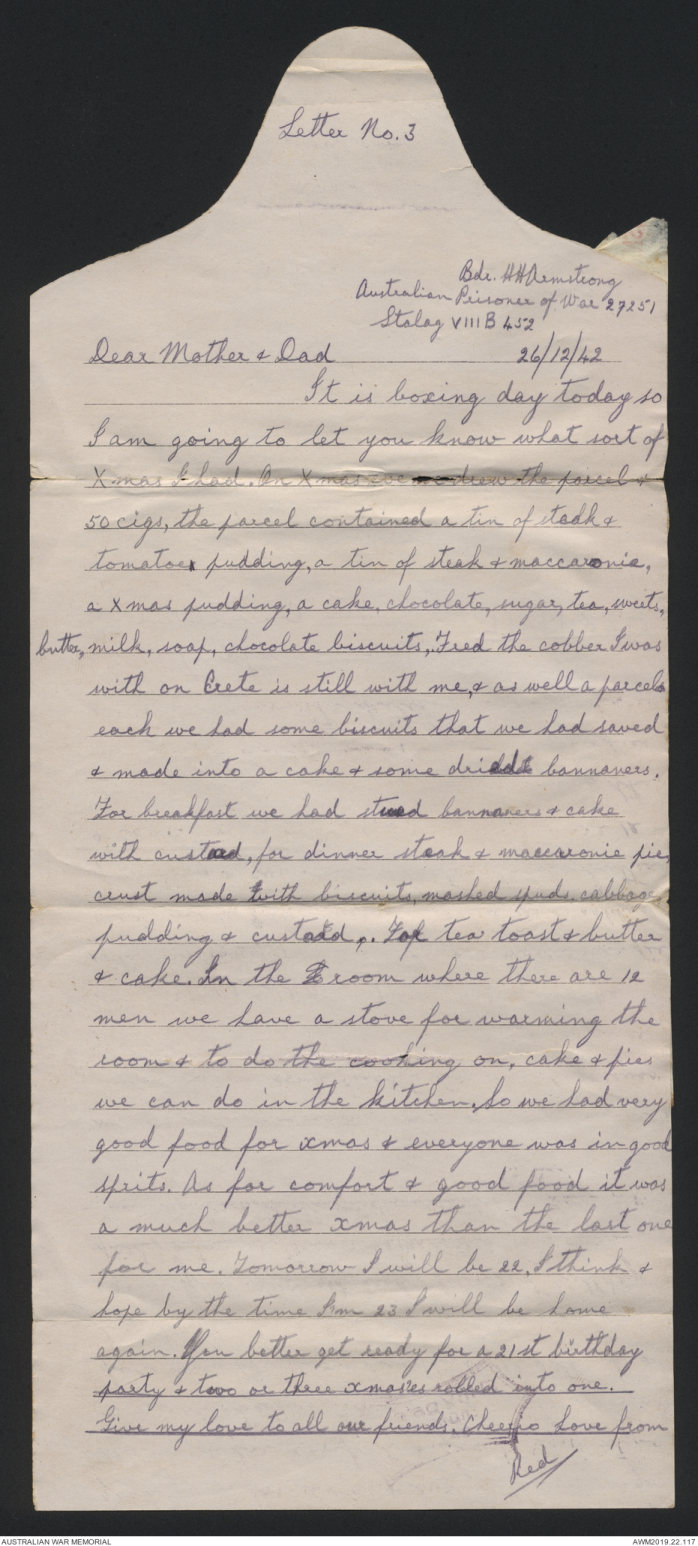 Letter No. 3
Bdr. HH Armstrong
Australian Prisoner of War 27251
Stalag VIIIB 452
Dear Mother & Dad 26/12/42
It is boxing day today so
I am going to let you know what sort of
Xmas I had. On Xmas eve we drew the parcel &
50 cigs, the parcel contained a tin of steak &
tomatoes pudding, a tin of steak & maccaronie,
a Xmas pudding, a cake, chocolate, sugar, tea, sweets,
butter, milk, soap, chocolate biscuits, Fred the cobber I was
with on Crete is still with me, & as well a parcel
each we had some biscuits that we had saved
& made into a cake & some dried bannaners.
For breakfast we had stued bannaners & cake
with custard, for dinner steak & maccaronie pie,
crust made with biscuits, mashed spuds, cabbage
pudding & custard,. For tea toast & butter
& cake. In the room where there are 12
men we have a stove for warming the
room & to do the cooking on, cake & pies
we can do in the kitchen. So we had very
good food for xmas & everyone was in good
sprits. As for comfort & good food it was
a much better xmas than the last one
for me. Tomorrow I will be 22, I think &
hope by the time I'm 23 I will be home
again. You better get ready for a 21st birthday
party & two or three xmas'es rolled into one.
Give my love to all our friends. Cheerio Love from
Red
AUSTRALIAN WAR MEMORIAL AWM2019.22.117